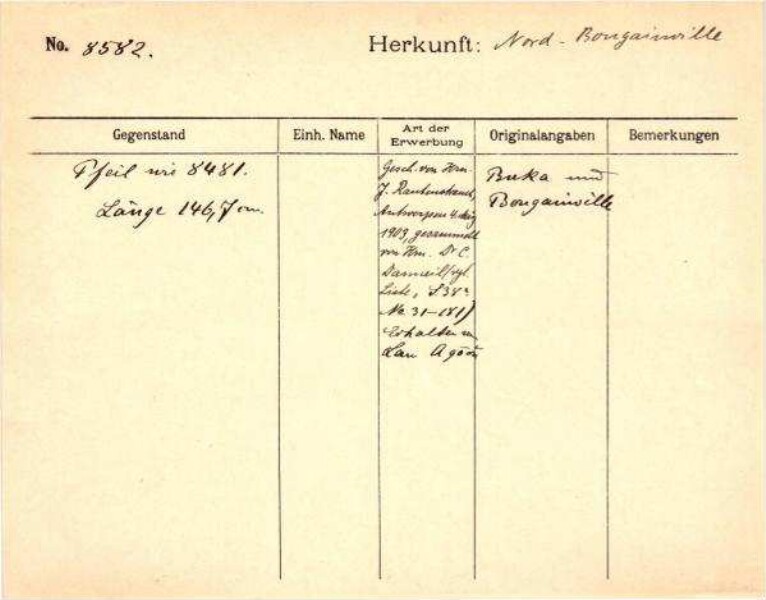 No. 8582. Herkunft: Nord-Bougainville
Gegenstand Einh. Name Art der Erwerbung Originalangaben Bemerkungen
Pfeil wie 8481.
Länge 146,7 cm.
Gesch. von Hrn.
J. Rautenstrauch,
Antwerpen 4. Aug
1903, gesammelt
von Hrn. Dr C.
Danneil (vgl.
Liste, S 38a
No 31-181)
Erhalten in
Lau
Buka und
Bougainville